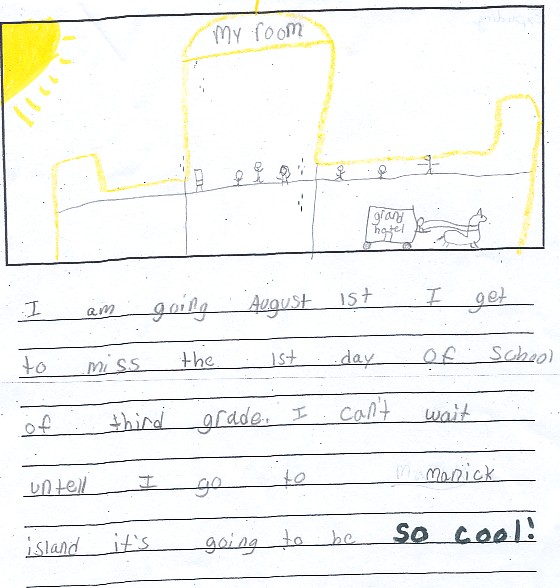 My room
grand
hotel
I am going August 1st I get
to miss the 1st day of school
of third grade. I can't wait
untell I go to manick
island it's going to be so cool!